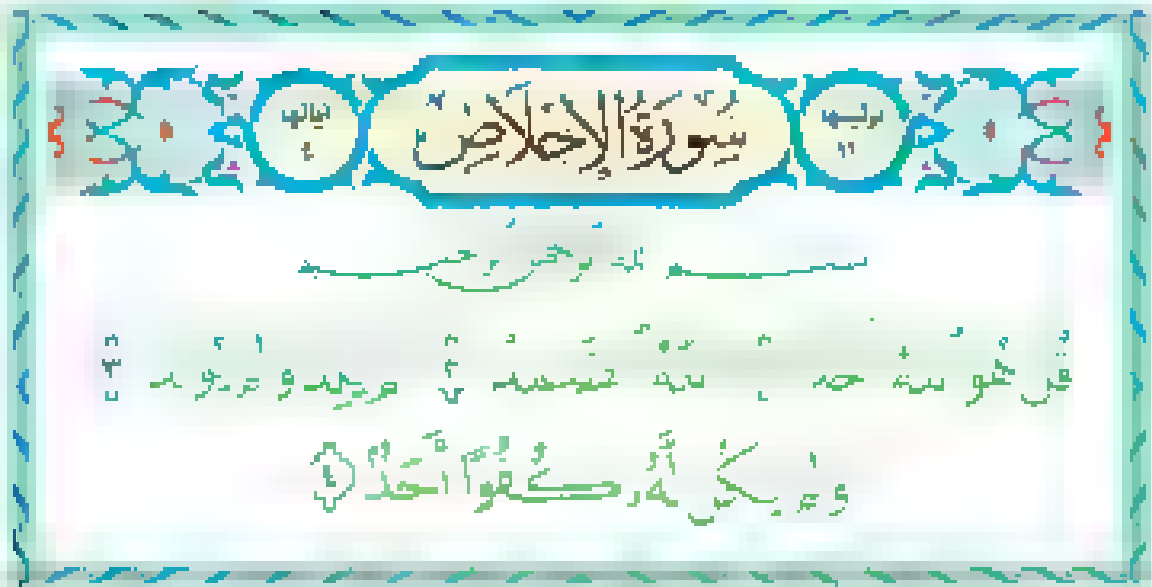 سُورَةُ الإِخْلَاصِ
آياتها ٤
بسم الله الرحمن الرحيم
قُلْ هُوَ اللَّهُ أَحَدٌ ١ اللَّهُ الصَّمَدُ ٢ لَمْ يَلِدْ وَلَمْ يُولَدْ ٣
وَلَمْ يَكُن لَّهُۥ كُفُوًا أَحَدٌ ٤